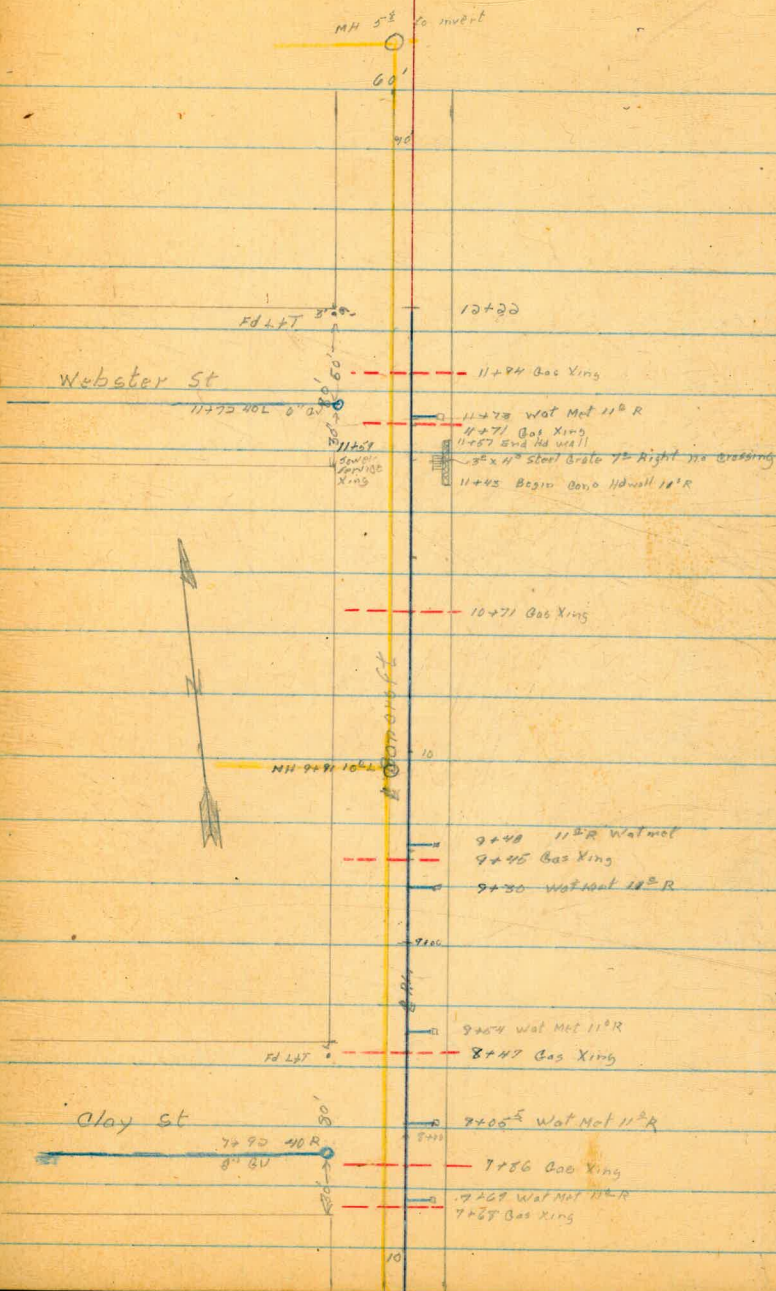 MH 5⁴ to invert
60'
40'
12+22
Fd L&T
11+84 Gas Xing
Webster St
80'
50'
11+73 Wat Met 11⁰ R
11+71 Gas Xing
11+57 End Hd wall
30'
11+59
Sewer
Service
Xing
3⁰ x 4⁰ Steel Grate 7⁰ Right no Crossing
11+45 Begin Conc Hdwall 11' R
10+71 Gas Xing
N
Bancroft
10
MH 9+91 10⁰ L
9+48 11⁰ R Wat met
9+45 Gas Xing
9+30 Wat Met 11⁰ R
9+00
8+54 Wat Met 11⁰ R
Fd L&T
8+47 Gas Xing
Clay St
80'
8+05⁵ Wat Met 11⁰ R
8+00
7+92 40 R
8" GV
7+86 Gas Xing
30'
7+69 Wat Met 11⁰ R
7+68 Gas Xing
10